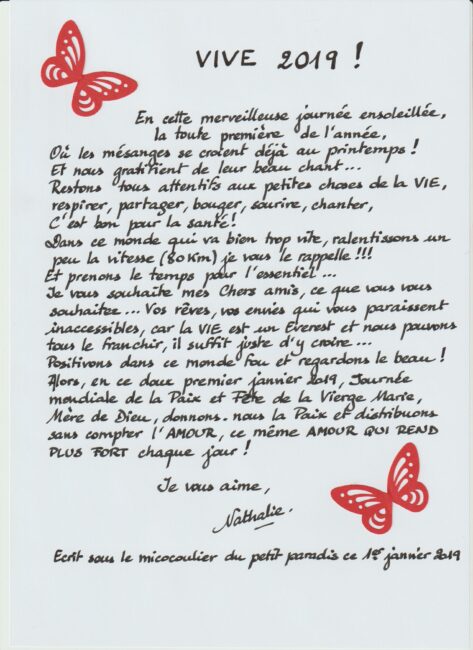 VIVE 2019 !
En cette merveilleuse journée ensoleillée,
la toute première de l'année,
Où les mésanges se croient déjà au printemps !
Et nous gratifient de leur beau chant...
Restons tous attentifs aux petites choses de la VIE,
respirer, partager, bouger, sourire, chanter,
C'est bon pour la santé !
Dans ce monde qui va bien trop vite, ralentissons un
peu la vitesse (80 Km) je vous le rappelle !!!
Et prenons le temps pour l'essentiel...
Je vous souhaite mes Chers amis, ce que vous vous
souhaitez... Vos rêves, vos envies qui vous paraissent
inaccessibles, car la VIE est un Everest et nous pouvons
tous le franchir, il suffit juste d'y croire...
Positivons dans ce monde fou et regardons le beau !
Alors, en ce doux premier janvier 2019, Journée
mondiale de la Paix et Fête de la Vierge Marie,
Mère de Dieu, donnons-nous la Paix et distribuons
sans compter l'AMOUR, ce même AMOUR QUI REND
PLUS FORT chaque jour !
Je vous aime,
Nathalie.
Ecrit sous le micocoulier du petit paradis ce 1er janvier 2019